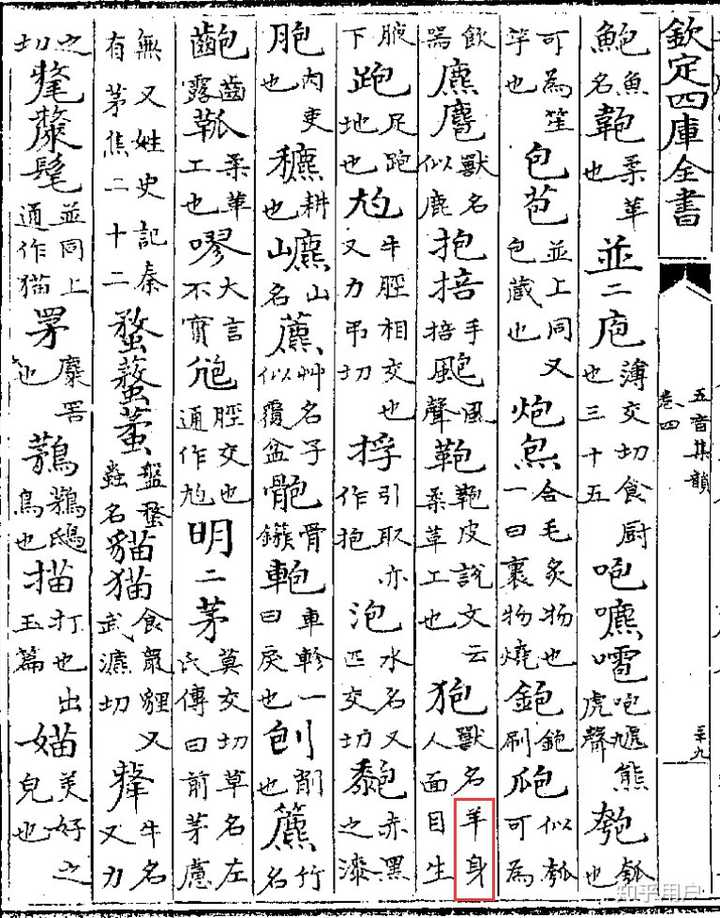 欽定四庫全書
五音集韻
卷四
鮑魚名柔革也並二庖薄交切食厨也三十五咆咆熊虎聲瓠也
可為笙竽也包苞並上同又包藏也炮炰合毛炙物也一曰裹物燒鉋鉋刷瓟似瓠可為
飲器麃獸名似鹿抱掊手掊颮風聲鞄鞄皮說文云柔革工也狍獸名羊身人面目生
腋下跑足跑地也尥牛脛相交也又力弔切捊引取亦作抱泡水名又匹交切赤黑之漆
胞肉吏也穮耕也山名藨艸名子似覆盆骲骨鏃軳車軫一曰戾也刨削也竹名
齙齒露柔革工也嘐大言不實脛交也通作尥明二茅莫交切草名左氏傳曰前茅慮
無又姓史記秦有茅焦二十二蝥蟊盤蝥蟲名貓猫食鼠貍又武瀌切犛牛名又力
之切氂斄髦並同上通作猫罞麋罟也鶜鶜鴟鳥也描打也出玉篇媌美好之皃也
知乎用户